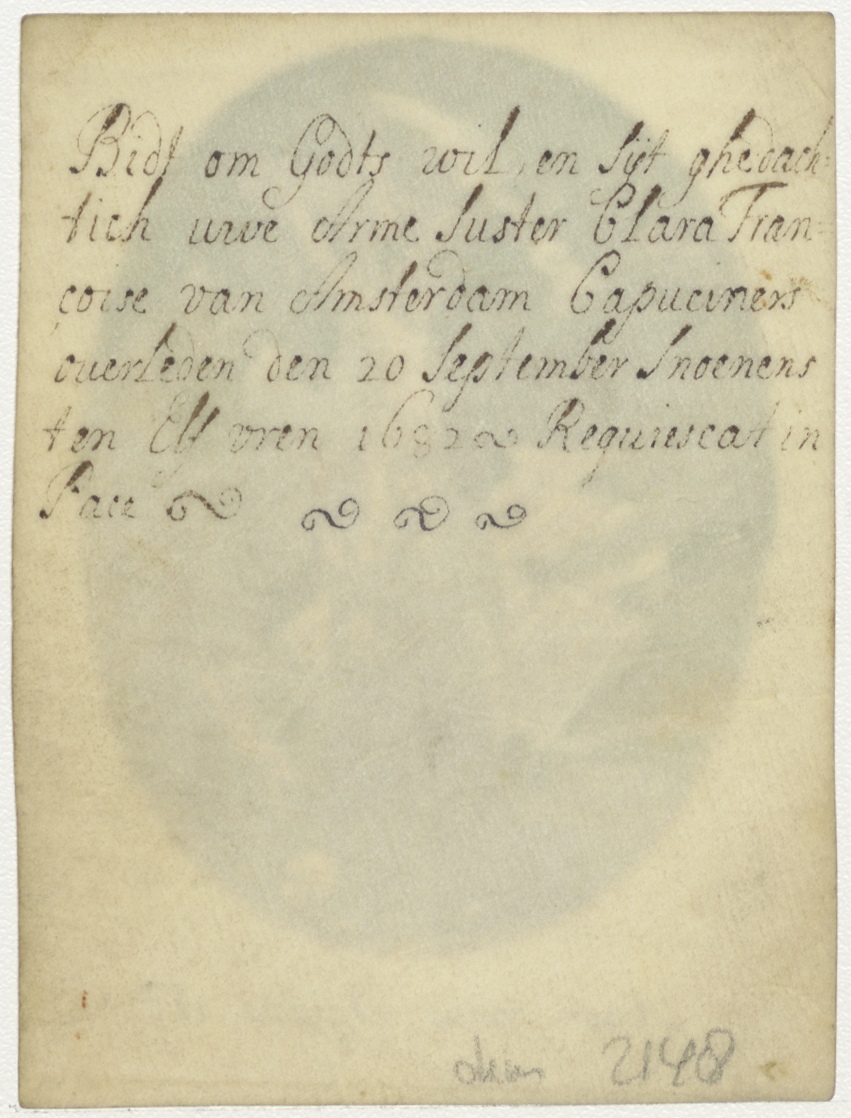 Bidt om Godts wil, en sijt ghedach=
tich uwe Arme suster Clara Fran=
çoise van Amsterdam Capuciners
overleden den 20 september snoenens
ten Elf vren 1682 Requiescat in
Pace
2148